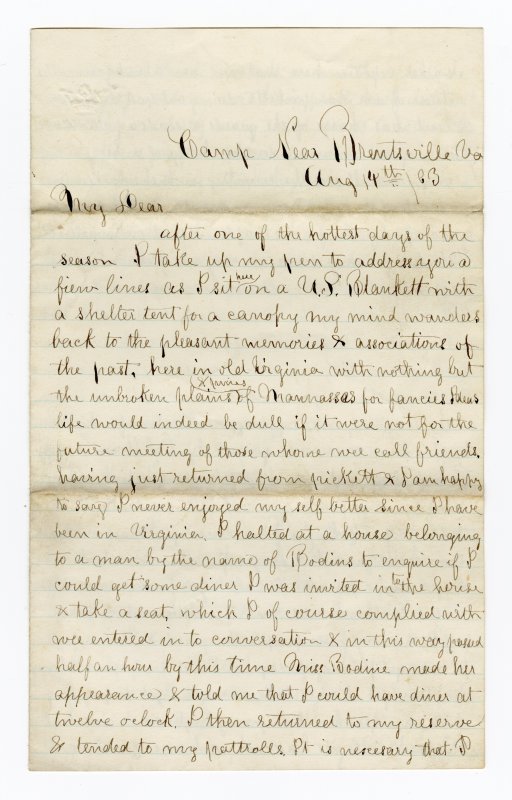 Camp Near Brentsville Va
Aug 14th /63
My Dear
after one of the hottest days of the
season I take up my pen to address you a
fiew lines as I sit here on a U.S. Blankett with
a shelter tent for a canopy my mind wanders
back to the pleasant memories & associations of
the past, here in old Virginia with nothing but
the unbroken plains & pines of Mannassas for fancies Ideas
life would indeed be dull if it were not for the
future meeting of those whome wee call friends.
having just returned from pickett & I am happy
to say I never enjoyed my self better since I have
been in Virginia. I halted at a house belonging
to a man by the name of Bodins to enquire if I
could get some diner I was invited in to the house
& take a seat, which I of course complied with
wee entered in to conversation & in this way passed
half an hour by this time Miss Bodine made her
appearance & told me that I could have diner at
twelve oclock. I then returned to my reserve
& tended to my pattrolls. It is nescesary that I